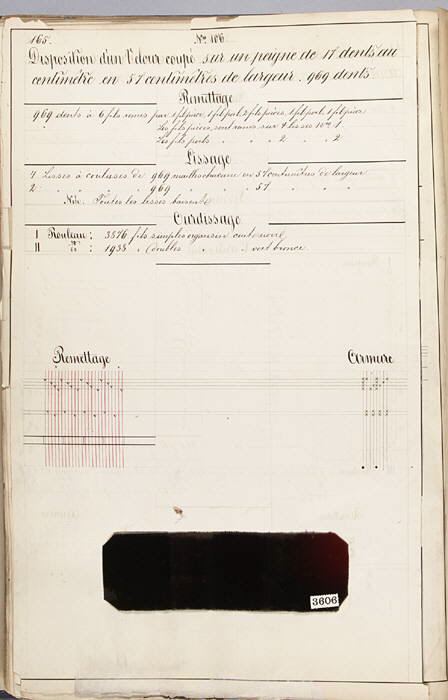 165.
N° 106
Disposition d'un Velour coupé sur un peigne de 17 dents au
centimètre en 57 centimètres de largeur. 969 dents
Remettage
969 dents à 6 fils remis par 1 fil pièce, 1 fil poil, 2 fils pièces, 1 fil poil, 1 fil pièce
Les fils pièces, sont remis sur 4 lisses
Les fils poils " " " 2 " " 2
Lissage
4 Lisses à coulases de 969 mailles chacune en 57 centimètres de largeur
2 " " " 969 " " " 57 " " "
Nota. Toutes les lisses
Ourdissage
I Rouleau : 3876 fils simples organsin cuit noir
II do : 1938 " (doubles " " vert bronce
Remettage
Armure
3606